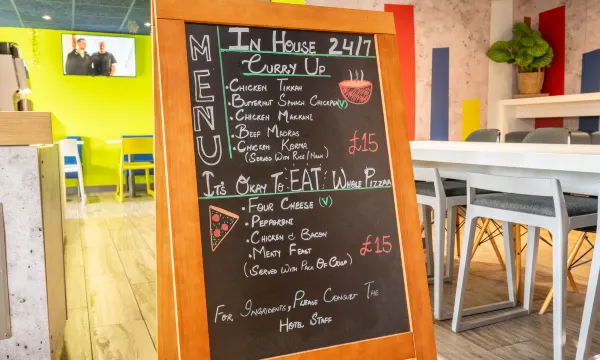 MENU
IN HOUSE 24/7
CURRY UP
• CHICKEN TIKKAH
• BUTTERNUT SPINACH CHICKPEA (V)
• CHICKEN MAKHANI
• BEEF MADRAS
• CHICKEN KORMA
(SERVED WITH RICE/NAAN)
£15
IT'S OKAY TO EAT A WHOLE PIZZAA
• FOUR CHEESE (V)
• PEPPERONI
• CHICKEN & BACON
• MEATY FEAST
(SERVED WITH PACK OF CRISP)
£15
FOR INGRIDENTS, PLEASE CONSULT THE
HOTEL STAFF